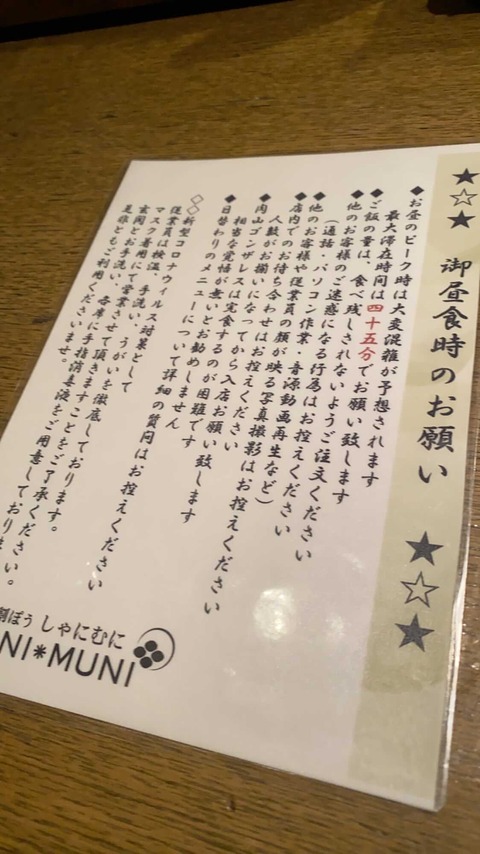 ★☆★ 御昼食時のお願い ★☆★
◆お昼のピーク時は大変混雑が予想されます
最大滞在時間は四十五分でお願い致します
◆ご飯の量は、食べ残しされないようご注文ください
◆他のお客様のご迷惑になる行為はお控えください
(通話・パソコン作業・音源動画再生など)
◆他のお客様や従業員の顔が映る写真撮影はお控えください
◆店内でのお待ち合わせはお控えください
人数がお揃いになってから入店お願い致します
◆内山ゴンザレスは完食するのが困難です
相当な覚悟が無いとお勧めしません
◆日替わりのメニューについて詳細の質問はお控えください
◇新型コロナウィルス対策として
◇従業員は検温、手洗い、うがいを徹底しております。
マスク着用にて営業させて頂きますことをご了承ください。
玄関とお手洗い、各席に手指消毒液をご用意しております。
是非ともご利用くださいませ。
割ぽう しゃにむに
NI*MUNI